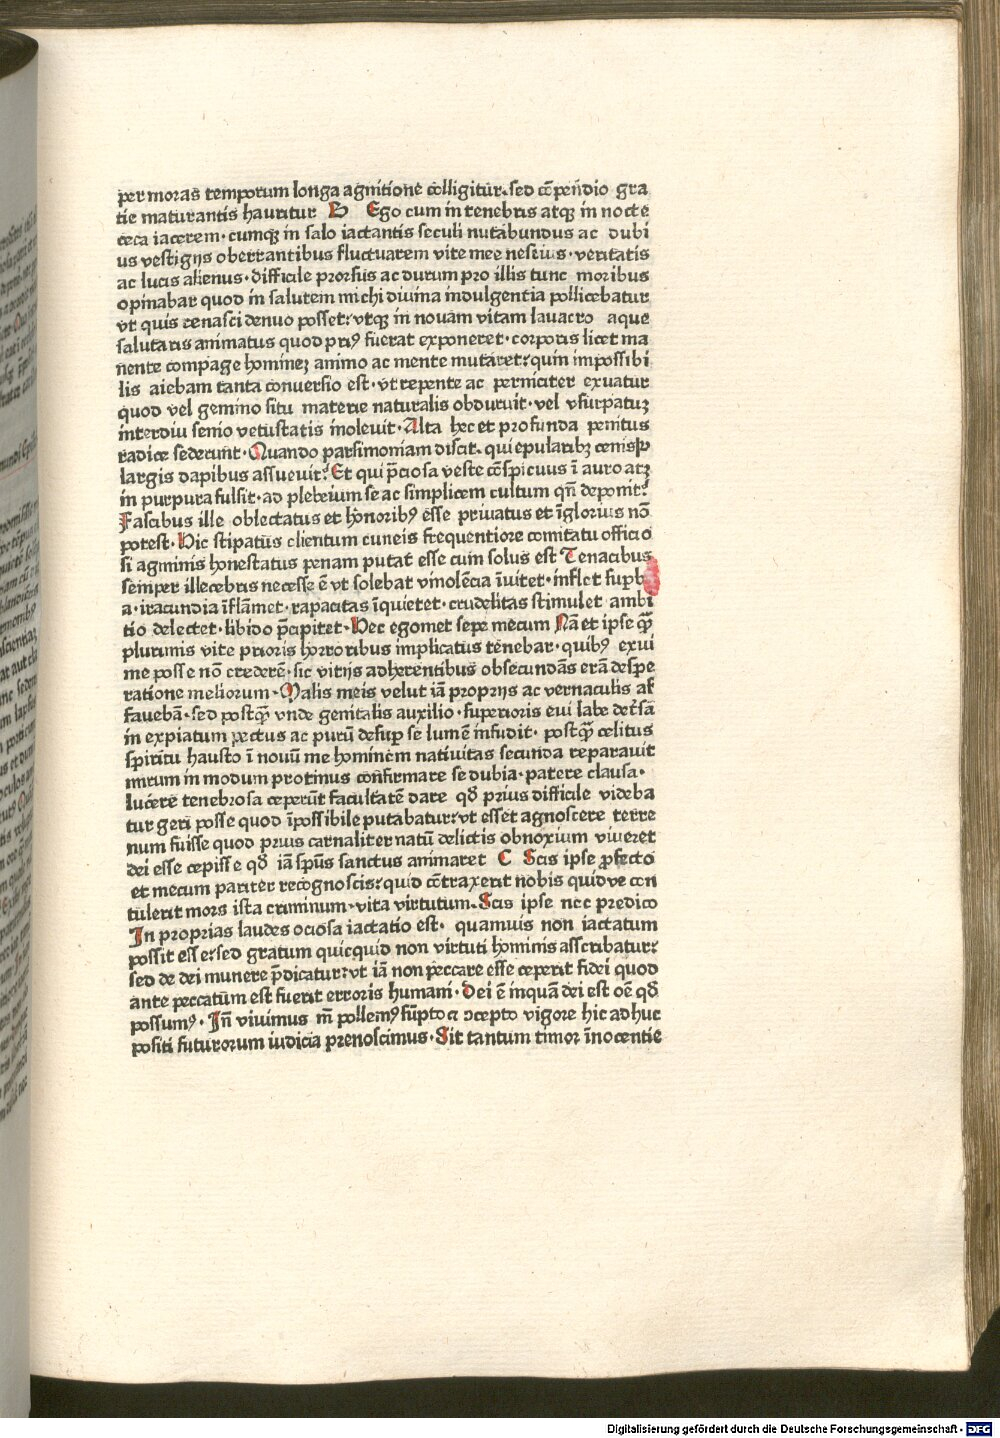 per moras temporum longa agnitione colligitur. sed cōpendio gra
tie maturantis hauritur B Ego cum in tenebris atqꝫ in nocte
ceca iacerem· cumqꝫ in salo iactantis seculi nutabundus ac dubi
us vestigijs oberrantibus fluctuarem vite mee nescius· veritatis
ac lucis alienus· difficile prorsus ac durum pro illis tunc moribus
opinabar quod in salutem michi diuina indulgentia pollicebatur
vt quis renasci denuo posset: vtqꝫ in nouam vitam lauacro aque
salutaris animatus quod priꝰ fuerat exponeret· corporis licet ma
nente compage hominez animo ac mente mutaret: quin impossibi
lis aiebam tanta conuersio est· vt repente ac perniciter exuatur
quod vel genuino situ materie naturalis obduruit· vel vsurpatuꝫ
interdiu senio vetustatis inoleuit· Alta hec et profunda penitus
radice sederunt· Quando parsimoniam discit· qui epularibꝫ
largis dapibus assueuit? Et qui p̄ciosa veste cōspicuus ī auro atqꝫ
in purpura fulsit· ad plebeium se ac simplicem cultum qn̄ deponit?
Fascibus ille oblectatus et honoribꝰ esse priuatus et īglorius nō
potest· Hic stipatus clientum cuneis frequentiore comitatu officio
si agminis honestatus penam putat esse cum solus est Tenacibus
semper illecebris necesse ē vt solebat vinolēcia īuitet· inflet supb
a· iracundia īflāmet· rapacitas īquietet· crudelitas stimulet ambi
tio delectet· libido p̄cipitet· Hec egomet sepe mecum Nā et ipse qꝫ
plurimis vite prioris horroribus implicatus tenebar· quibꝰ exui
me posse nō crederē· sic vitijs adherentibus obsecundās erā despe
ratione meliorum· Malis meis velut iā proprijs ac vernaculis af
fauebā· sed postqꝫ vnde genitalis auxilio· superioris eui labe detsā
in expiatum pectus ac purū desup se lumē infudit· postqꝫ celitus
spiritu hausto ī nouū me hominem natiuitas secunda reparauit
mirum in modum protinus confirmare se dubia· patere clausa·
lucere tenebrosa ceperūt facultatē dare qđ prius difficile videba
tur geri posse quod īpossibile putabatur: vt esset agnoscere terre
num fuisse quod prius carnaliter natū delictis obnoxium viueret
dei esse cepisse qđ iā sp̄us sanctus animaret C Scis ipse ꝓfecto
et mecum pariter recognoscis: quid cōtraxerit nobis quidve con
tulerit mors ista criminum· vita virtutum· Scis ipse nec predico
In proprias laudes ociosa iactatio est· quamuis non iactatum
possit esse: sed gratum quicquid non virtuti hominis asscribatur:
sed de dei munere p̄dicatur: vt iā non peccare esse ceperit fidei quod
ante peccatum est fuerit erroris humani· Dei ē inquā dei est oē qđ
possumꝰ· In̄ viuimus in̄ pollemꝰ sūpto a ɔcepto vigore hic adhuc
positi futurorum iudicia prenoscimus· Sit tantum timor īnocentie
Digitalisierung gefördert durch die Deutsche Forschungsgemeinschaft · DFG